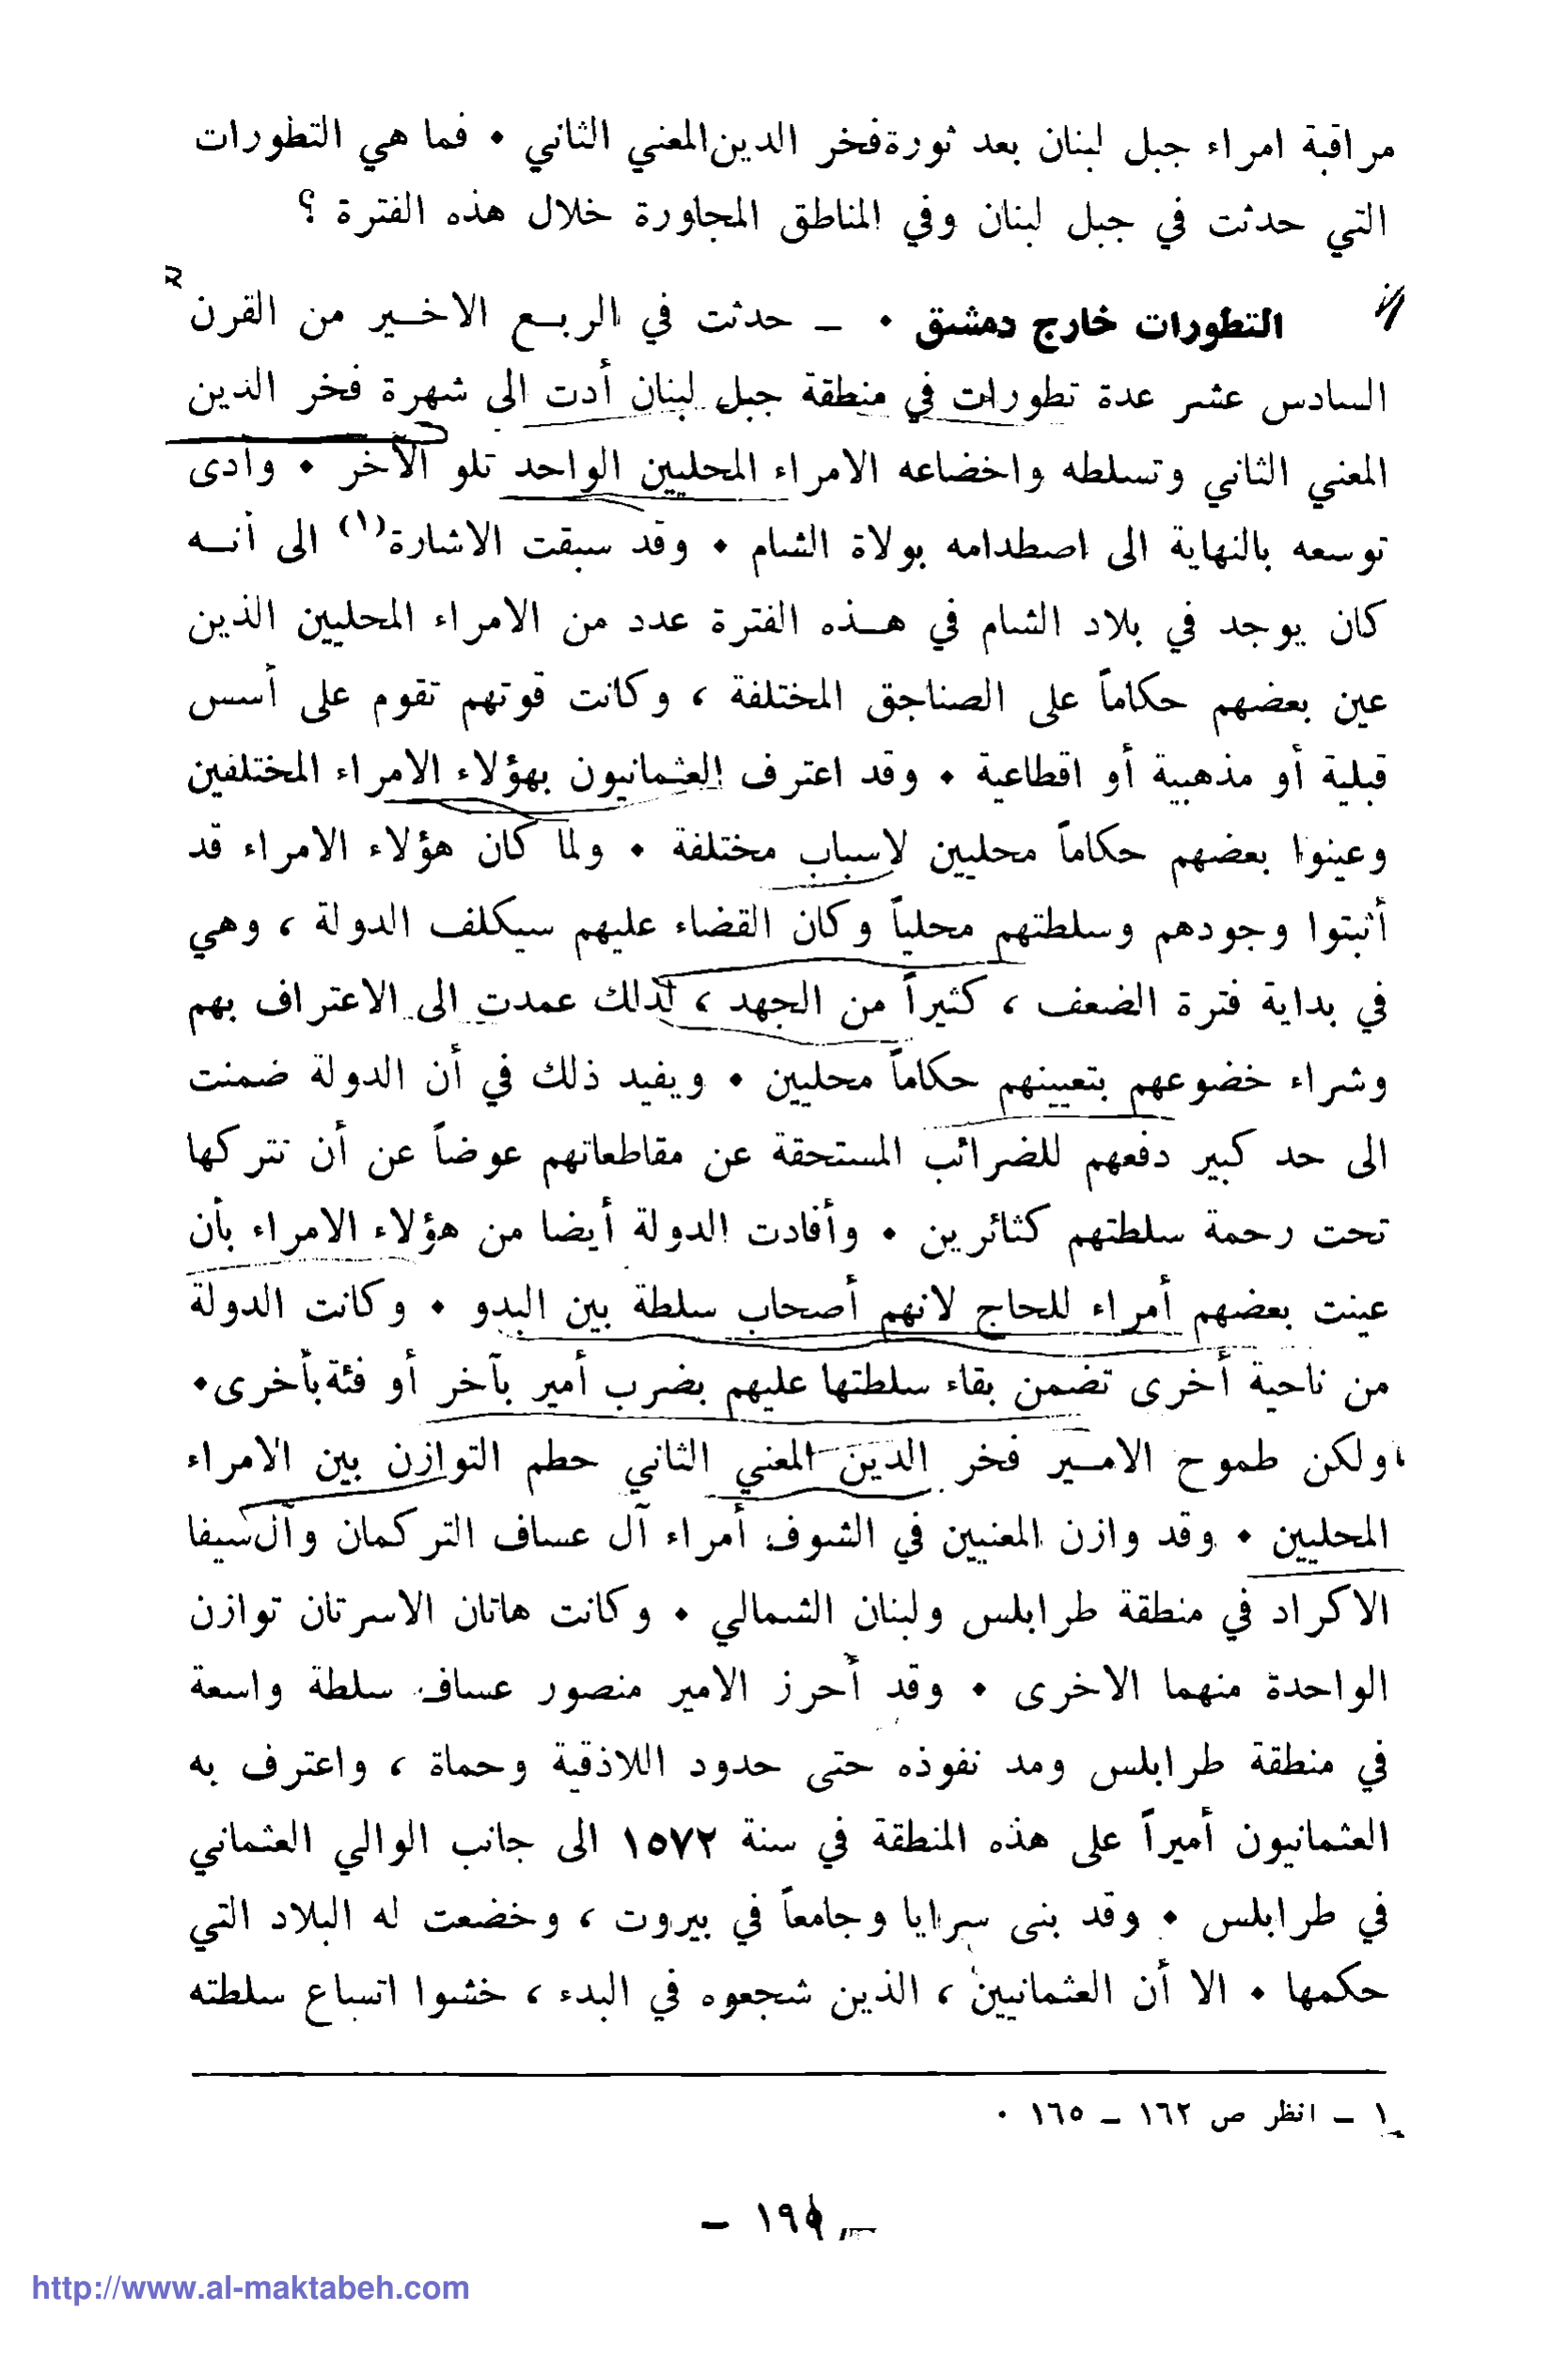 مراقبة امراء جبل لبنان بعد ثورة فخر الدين المعني الثاني ٠ فما هي التطورات
التي حدثت في جبل لبنان وفي المناطق المجاورة خلال هذه الفترة ؟
التطورات خارج دمشق ٠ ــ حدثت في الربـع الاخـير من القرن
السادس عشر عدة تطورات في منطقة جبل لبنان أدت الى شهرة فخر الدين
المعني الثاني وتسلطه واخضاعه الامراء المحليين الواحد تلو الآخر ٠ وأدى
توسعه بالنهاية الى اصطدامه بولاة الشام ٠ وقد سبقت الاشارة(١) الى أنـه
كان يوجد في بلاد الشام في هـذه الفترة عدد من الامراء المحليين الذين
عين بعضهم حكاماً على الصناجق المختلفة ، وكانت قوتهم تقوم على أسس
قبلية أو مذهبية أو اقطاعية ٠ وقد اعترف العثمانيون بهؤلاء الامراء المختلفين
وعينوا بعضهم حكاماً محليين لاسباب مختلفة ٠ ولما كان هؤلاء الامراء قد
أثبتوا وجودهم وسلطتهم محلياً وكان القضاء عليهم سيكلف الدولة ، وهي
في بداية فترة الضعف ، كثيراً من الجهد ، لذلك عمدت الى الاعتراف بهم
وشراء خضوعهم بتعيينهم حكاماً محليين ٠ ويفيد ذلك في أن الدولة ضمنت
الى حد كبير دفعهم للضرائب المستحقة عن مقاطعاتهم عوضاً عن أن تتركها
تحت رحمة سلطتهم كثائرين ٠ وأفادت الدولة أيضا من هؤلاء الامراء بأن
عينت بعضهم أمراء للحاج لانهم أصحاب سلطة بين البدو ٠ وكانت الدولة
من ناحية أخرى تضمن بقاء سلطتها عليهم بضرب أمير بآخر أو فئة بأخرى٠
ولكن طموح الامـير فخر الدين المعني الثاني حطم التوازن بين الامراء
المحليين ٠ وقد وازن المعنيين في الشوف أمراء آل عساف التركمان وآل سيفا
الاكراد في منطقة طرابلس ولبنان الشمالي ٠ وكانت هاتان الاسرتان توازن
الواحدة منهما الاخرى ٠ وقد أحرز الامير منصور عساف سلطة واسعة
في منطقة طرابلس ومد نفوذه حتى حدود اللاذقية وحماة ، واعترف به
العثمانيون أميراً على هذه المنطقة في سنة ١٥٧٢ الى جانب الوالي العثماني
في طرابلس ٠ وقد بنى سرايا وجامعاً في بيروت ، وخضعت له البلاد التي
حكمها ٠ الا أن العثمانيين ، الذين شجعوه في البدء ، خشوا اتساع سلطته
١ ــ انظر ص ١٦٢ ــ ١٦٥ ٠
http://www.al-maktabeh.com